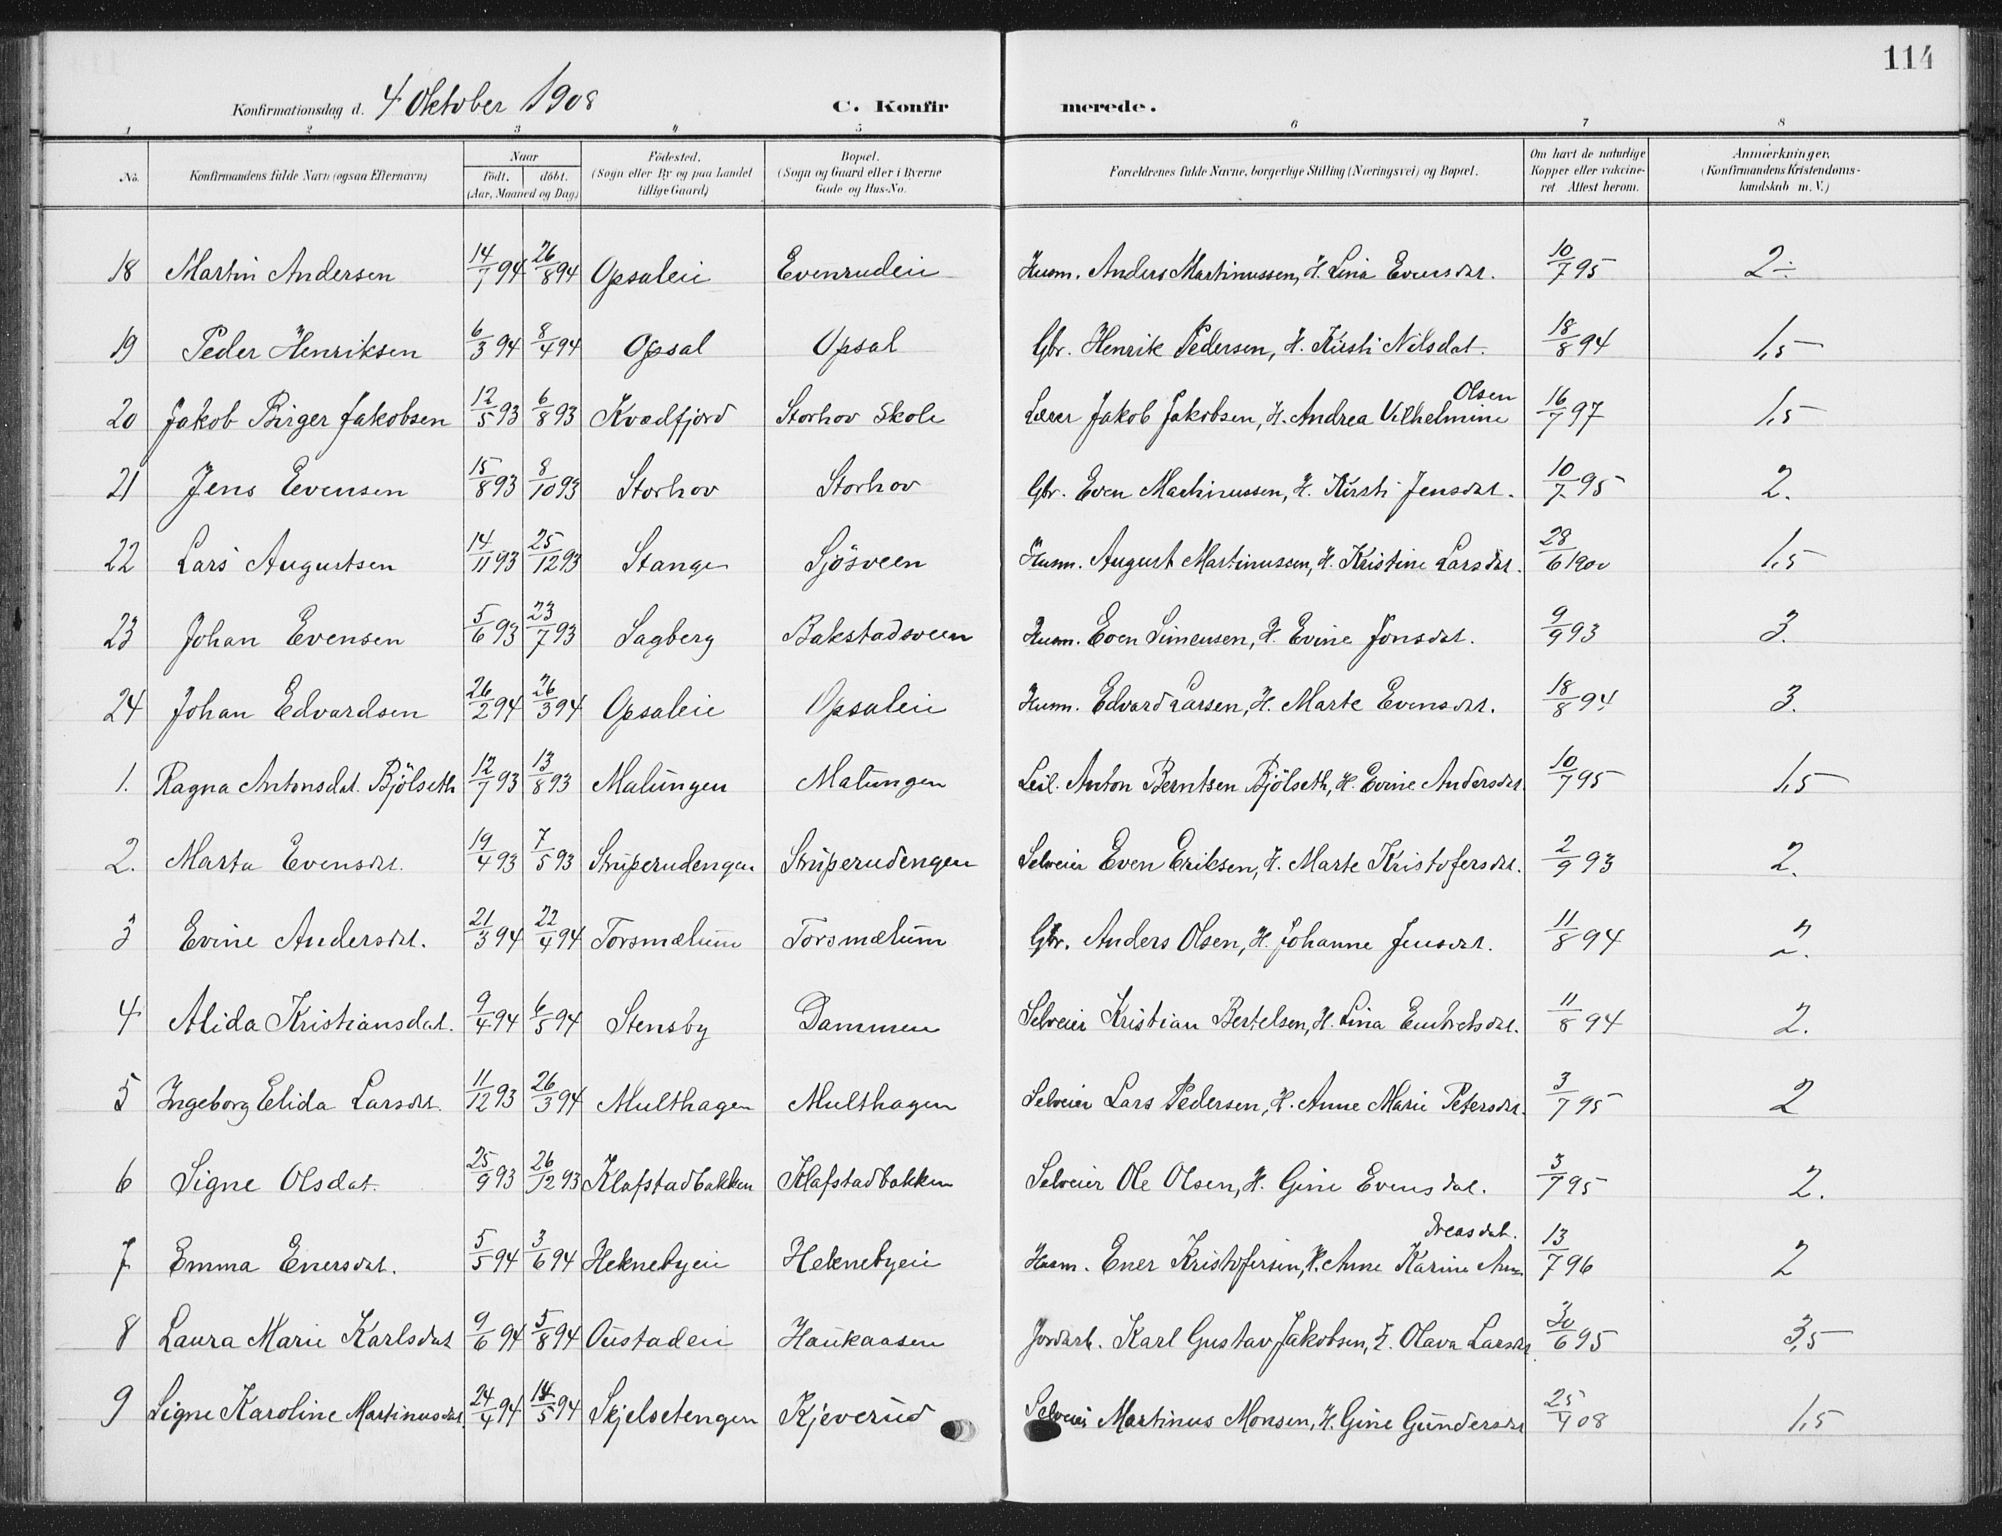 114
Konfirmationsdag d. 4 Oktober 1908 C. Konfirmerede.
1 2 3 4 5 6 7 8
No. Konfirmandens fulde Navn (ogsaa Efternavn) Naar født. døbt. (Aar, Maaned og Dag) Fødested. (Sogn eller By og paa Landet tillige Gaard) Bopæl. (Sogn og Gaard eller i Byerne Gade og Hus-No. Forældrenes fulde Navne, borgerlige Stilling (Næringsvei) og Bopæl. Om havt de naturlige Kopper eller vakcineret Attest herom. Anmærkninger. (Konfirmandens Kristendomskundskab m. V.)
18 Martin Andersen 14/7 94 26/8 94 Opsaleie Evenrudeie Husm. Anders Martinussen, H. Lina Evensdat. 10/7 95 2÷
19 Peder Henriksen 6/3 94 8/4 94 Opsal Opsal Gbr. Henrik Pedersen, H. Kirsti Nilsdat. 18/8 94 1,5
20 Jakob Birger Jakobsen 12/5 93 6/8 93 Kvædfjord Storhov Skole Lærer Jakob Jakobsen, H. Andrea Vilhelmine Olsen 16/7 97 1,5
21 Jens Evensen 15/8 93 8/10 93 Storhov Storhov Gbr. Even Martinussen, H. Kirsti Jensdat. 10/7 95 2.
22 Lars Augustsen 14/11 93 25/12 93 Stange Sjøsveen Husm. August Martinussen, H. Kristine Larsdat. 28/6 1900 1,5
23 Johan Evensen 5/6 93 23/7 93 Sagberg Bakstadsveen Husm. Even Simensen, H. Evine Jonsdat. 9/9 93 3.
24 Johan Edvardsen 26/2 94 26/3 94 Opsaleie Opsaleie Husm. Edvard Larsen, H. Marte Evensdat. 18/8 94 3.
1. Ragna Antonsdat. Bjölseth 12/7 93 13/8 93 Malungen Malungen Leil. Anton Berntsen Bjölseth, H. Evine Andersdat. 10/7 95 1,5
2. Marta Evensdat. 19/4 93 7/5 93 Struperudengen Struperudengen Selveier Even Eriksen, H. Marte Kristofersdat. 2/9 93 2.
3 Evine Andersdat. 21/3 94 22/4 94 Torsmælum Torsmælum Gbr. Anders Olsen, H. Johanne Jensdat. 11/8 94 2.
4 Alida Kristiansdat. 9/4 94 6/5 94 Stensby Dammen Selveier Kristian Bertelsen, H. Lina Embretsdat. 11/8 94 2.
5 Ingeborg Elida Larsdat. 11/12 93 26/3 94 Multhagen Multhagen Selveier Lars Pedersen, H. Anne Marie Petersdat. 3/7 95 2
6 Signe Olsdat. 25/9 93 26/12 93 Klafstadbakken Klafstadbakken Selveier Ole Olsen, H. Gine Evensdat. 3/7 95 2.
7 Emma Enersdat. 5/5 94 3/6 94 Heknebyeie Heknebyeie Husm. Ener Kristofersen, H. Anne Karine Andreasdat. 13/7 96 2
8 Laura Marie Karlsdat 9/6 94 5/8 94 Oustadeie Haukaasen Jordarb. Karl Gustav Jakobsen, H. Olava Larsdat. 30/6 95 3,5
9 Signe Karoline Martinusdat. 24/4 94 14/5 94 Skjelsetengen Kjeverud Selveier Martinus Monsen, H. Gine Gundersdat 25/4 08 1,5